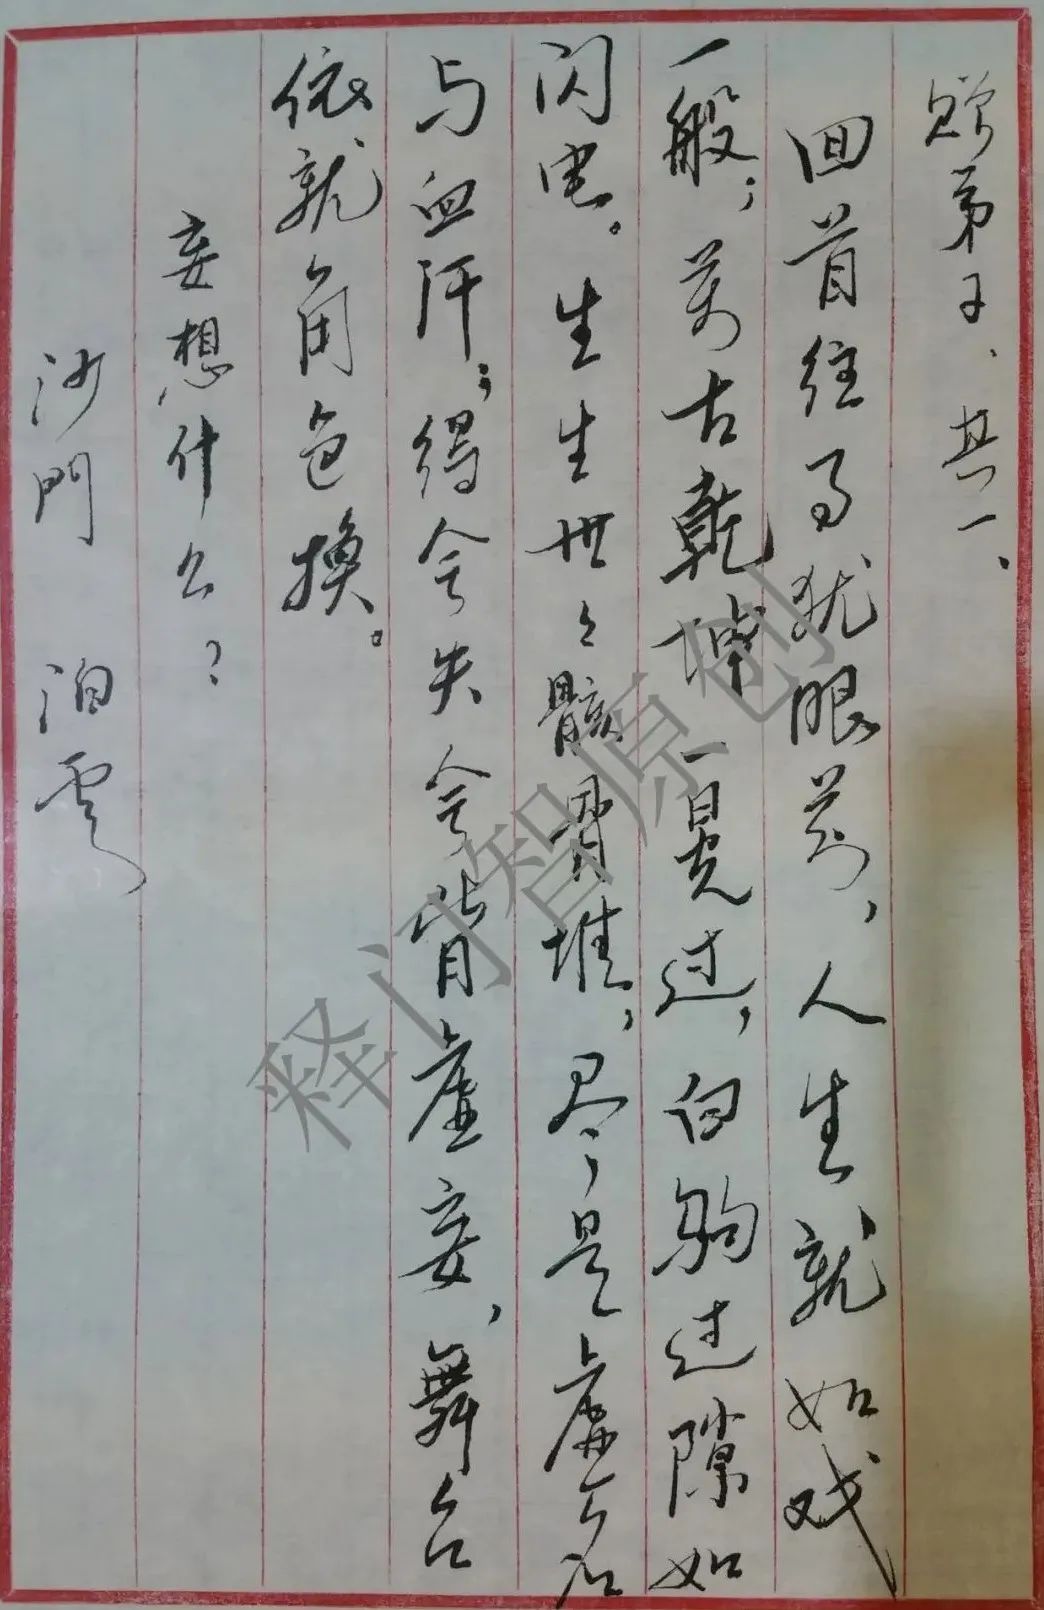 赠弟子、其一、
回首往事犹眼前，人生就如戏
一般；万古乾坤一晃过，白驹过隙如
闪电。生生世々骸骨堆，尽是虚名
与血汗；得今失今皆虚妄，舞台
依就角色换。
妄想什么？
沙門 泊雲
释门智原创